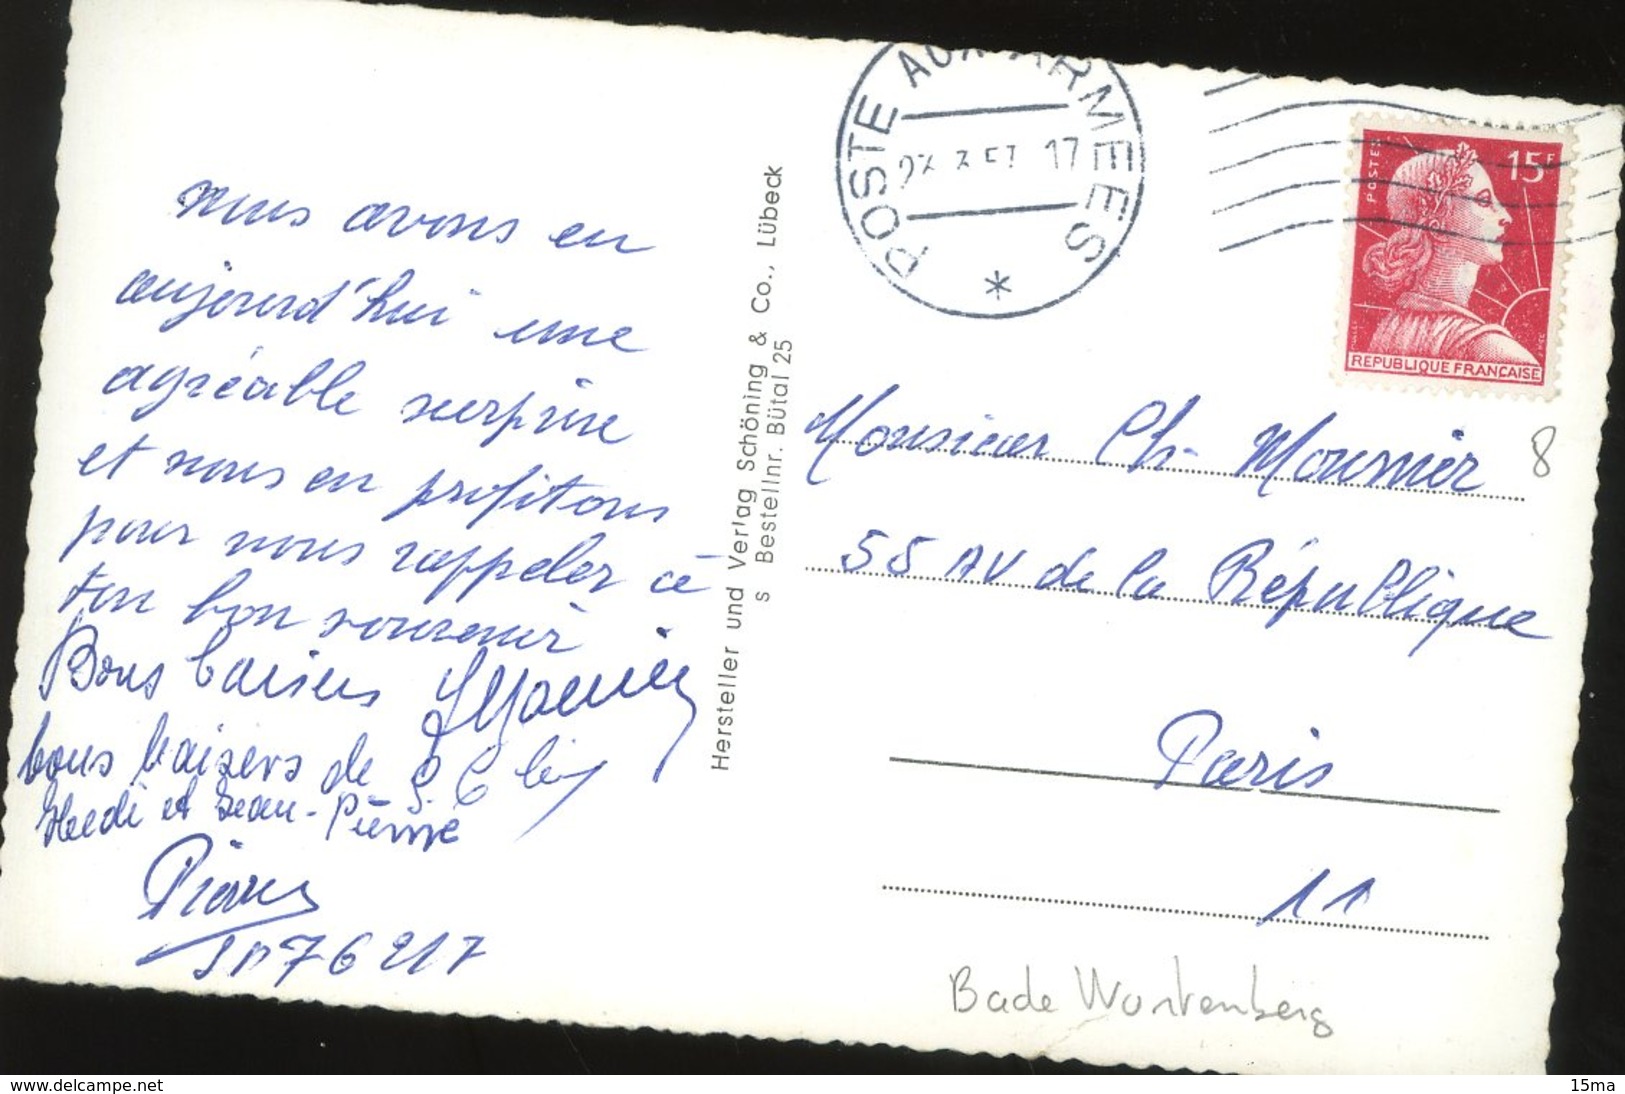 nous avons eu
aujourd'hui une
agréable surprise
et nous en profitons
pour nous rappeler à
ton bon souvenir
Bons baisers
bons baisers de
Heedi et Jean-Pierre
Pierre
76217
Hersteller und Verlag Schöning & Co., Lübeck
s Bestellnr. Bütal 25
POSTE AUX ARMEES
17
*
POSTES
15F
REPUBLIQUE FRANÇAISE
Monsieur Ch. Mounier
8
55 AV de la République
Paris
11
Bade Wurtenberg
delcampe.net
15ma